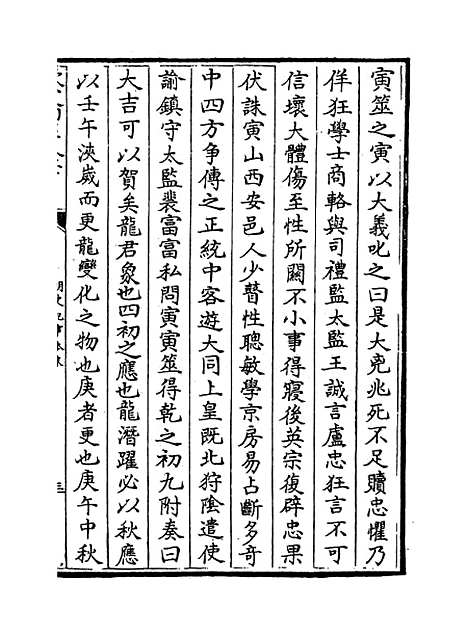 寅筮之寅以大義叱之曰是大兇兆死不足贖忠懼乃
佯狂學士商輅與司禮監太監王誠言盧忠狂言不可
信壞大體傷至性所關不小事得寢後英宗復辟忠果
伏誅寅山西安邑人少瞽性聰敏學京房易占斷多奇
中四方爭傳之正統中客遊大同上皇既北狩陰遣使
諭鎮守太監裴富富私問寅寅筮得乾之初九附奏曰
大吉可以賀矣龍君象也四初之應也龍潛躍必以秋應
以壬午浹嵗而更龍變化之物也庚者更也庚午中秋